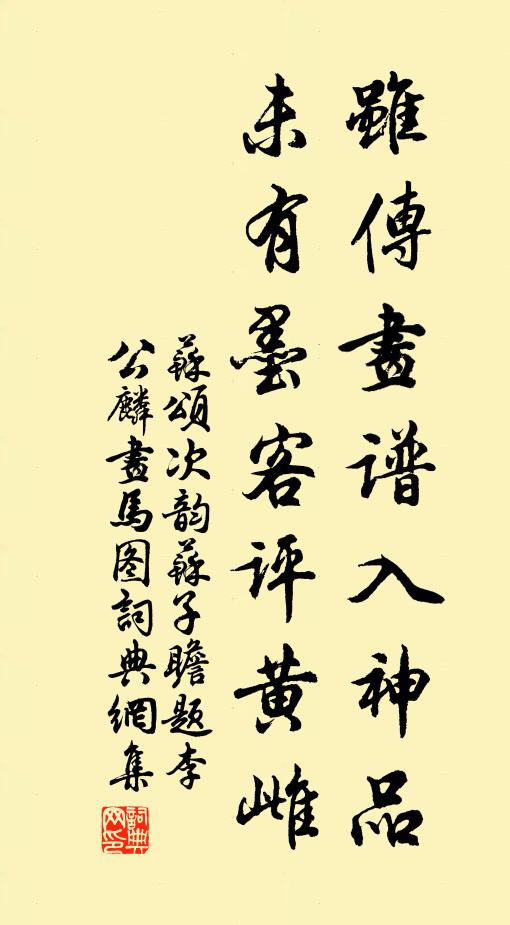 雖傳畫譜入神品
未有墨客評黃雌
蘇頌次韵蘇子瞻題李
公麟畫馬图詞典網集
詞典
网印